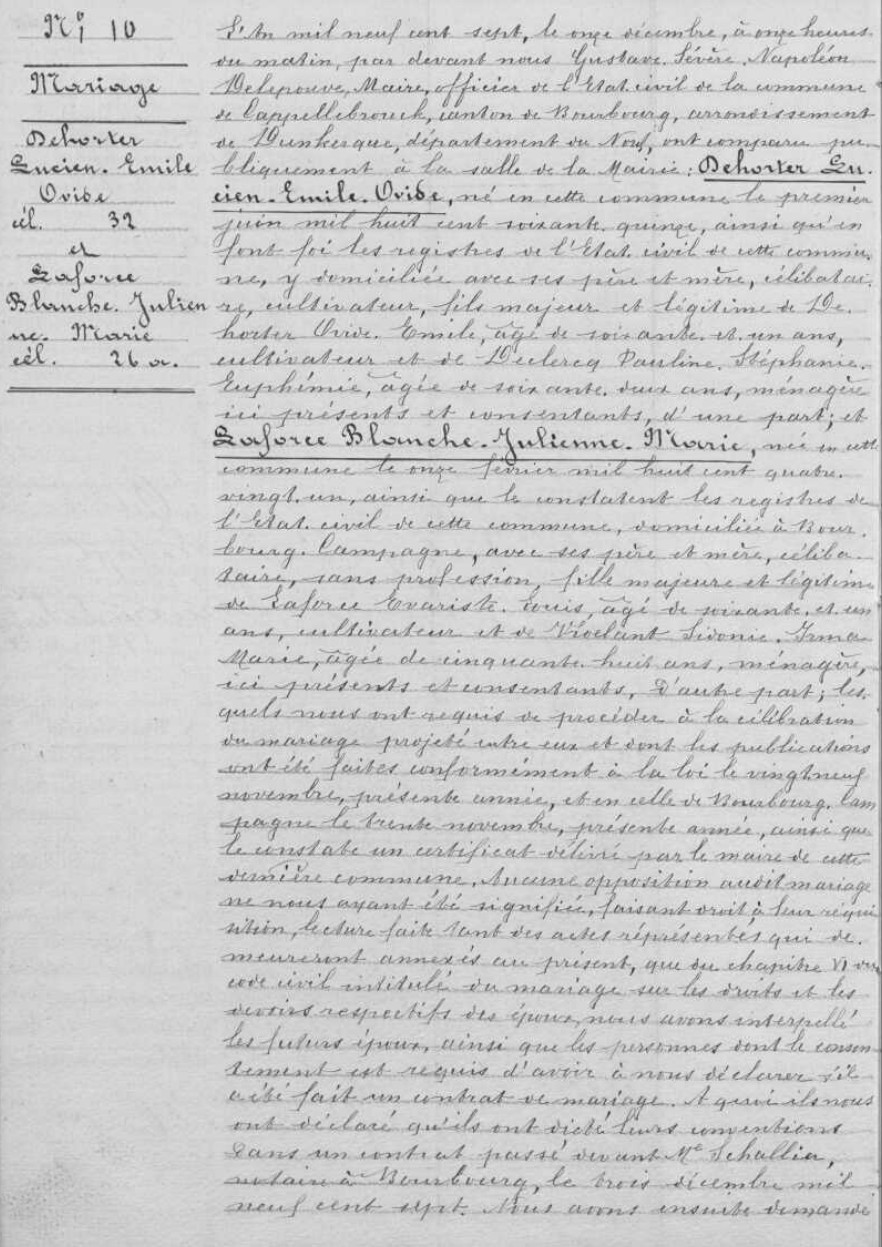 N° 10
Mariage
Dehorter
Lucien-Emile
Ovide
cél. 32
et
Laforce
Blanche-Julien
ne-Marie
cél. 26 a.
L'An mil neuf cent sept, le onze décembre, à onze heures
du matin, par devant nous Gustave Sévère Napoléon
Delepouve, Maire, officier de l'Etat civil de la commune
de Cappellebrouck, canton de Bourbourg, arrondissement
de Dunkerque, département du Nord, ont comparu pu-
bliquement à la salle de la Mairie: Dehorter Lu-
cien-Emile-Ovide, né en cette commune le premier
juin mil huit cent soixante-quinze, ainsi qu'en
font foi les registres de l'Etat-civil de cette commu-
ne, y domiciliée avec ses père et mère, célibatai-
re, cultivateur, fils majeur et légitime de De-
horter Ovide-Emile, âgé de soixante-et-un ans,
cultivateur et de Declercq Pauline-Stéphanie-
Euphémie, âgée de soixante-deux ans, ménagère
ici présents et consentants, d'une part; et
Laforce Blanche-Julienne-Marie, née en cette
commune le onze février mil huit cent quatre-
vingt-un, ainsi que le constatent les registres de
l'Etat-civil de cette commune, domiciliée à Bour-
bourg-Campagne, avec ses père et mère, céliba-
taire, sans profession, fille majeure et légitime
de Laforce Evariste-Louis, âgé de soixante-et-un
ans, cultivateur et de Sidonie-Irma-
Marie, âgée de cinquante-huit ans, ménagère,
ici présents et consentants, D'autre part; les-
quels nous ont requis de procéder à la célébration
du mariage projeté entre eux et dont les publications
ont été faites conformément à la loi le vingt-neuf
novembre, présente année, et en celle de Bourbourg-Cam
pagne le trente novembre, présente année, ainsi que
le constate un certificat délivré par le maire de cette
dernière commune. Aucune opposition audit mariage
ne nous ayant été signifiée, faisant droit à leur réqui
sition, lecture faite tant des actes représentés qui de-
meureront annexés au présent, que du chapitre VI du
code civil intitulé du mariage sur les droits et les
devoirs respectifs des époux, nous avons interpellé
les futurs époux, ainsi que les personnes dont le consen
tement est requis d'avoir à nous déclarer s'il
a été fait un contrat de mariage. A quoi ils nous
ont déclaré qu'ils ont dicté leurs conventions
dans un contrat passé devant Me Schallier,
notaire à Bourbourg, le trois décembre mil
neuf cent sept. Nous avons ensuite demandé